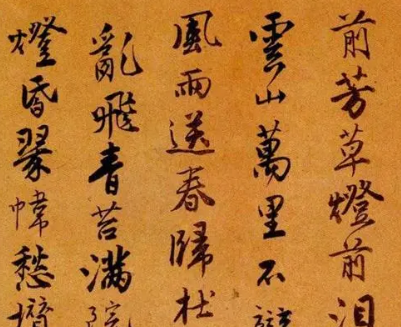 前芳草燈前泪
雲山萬里不
風雨送春歸杜
亂飛青苔滿院
燈昏翠幃愁攢